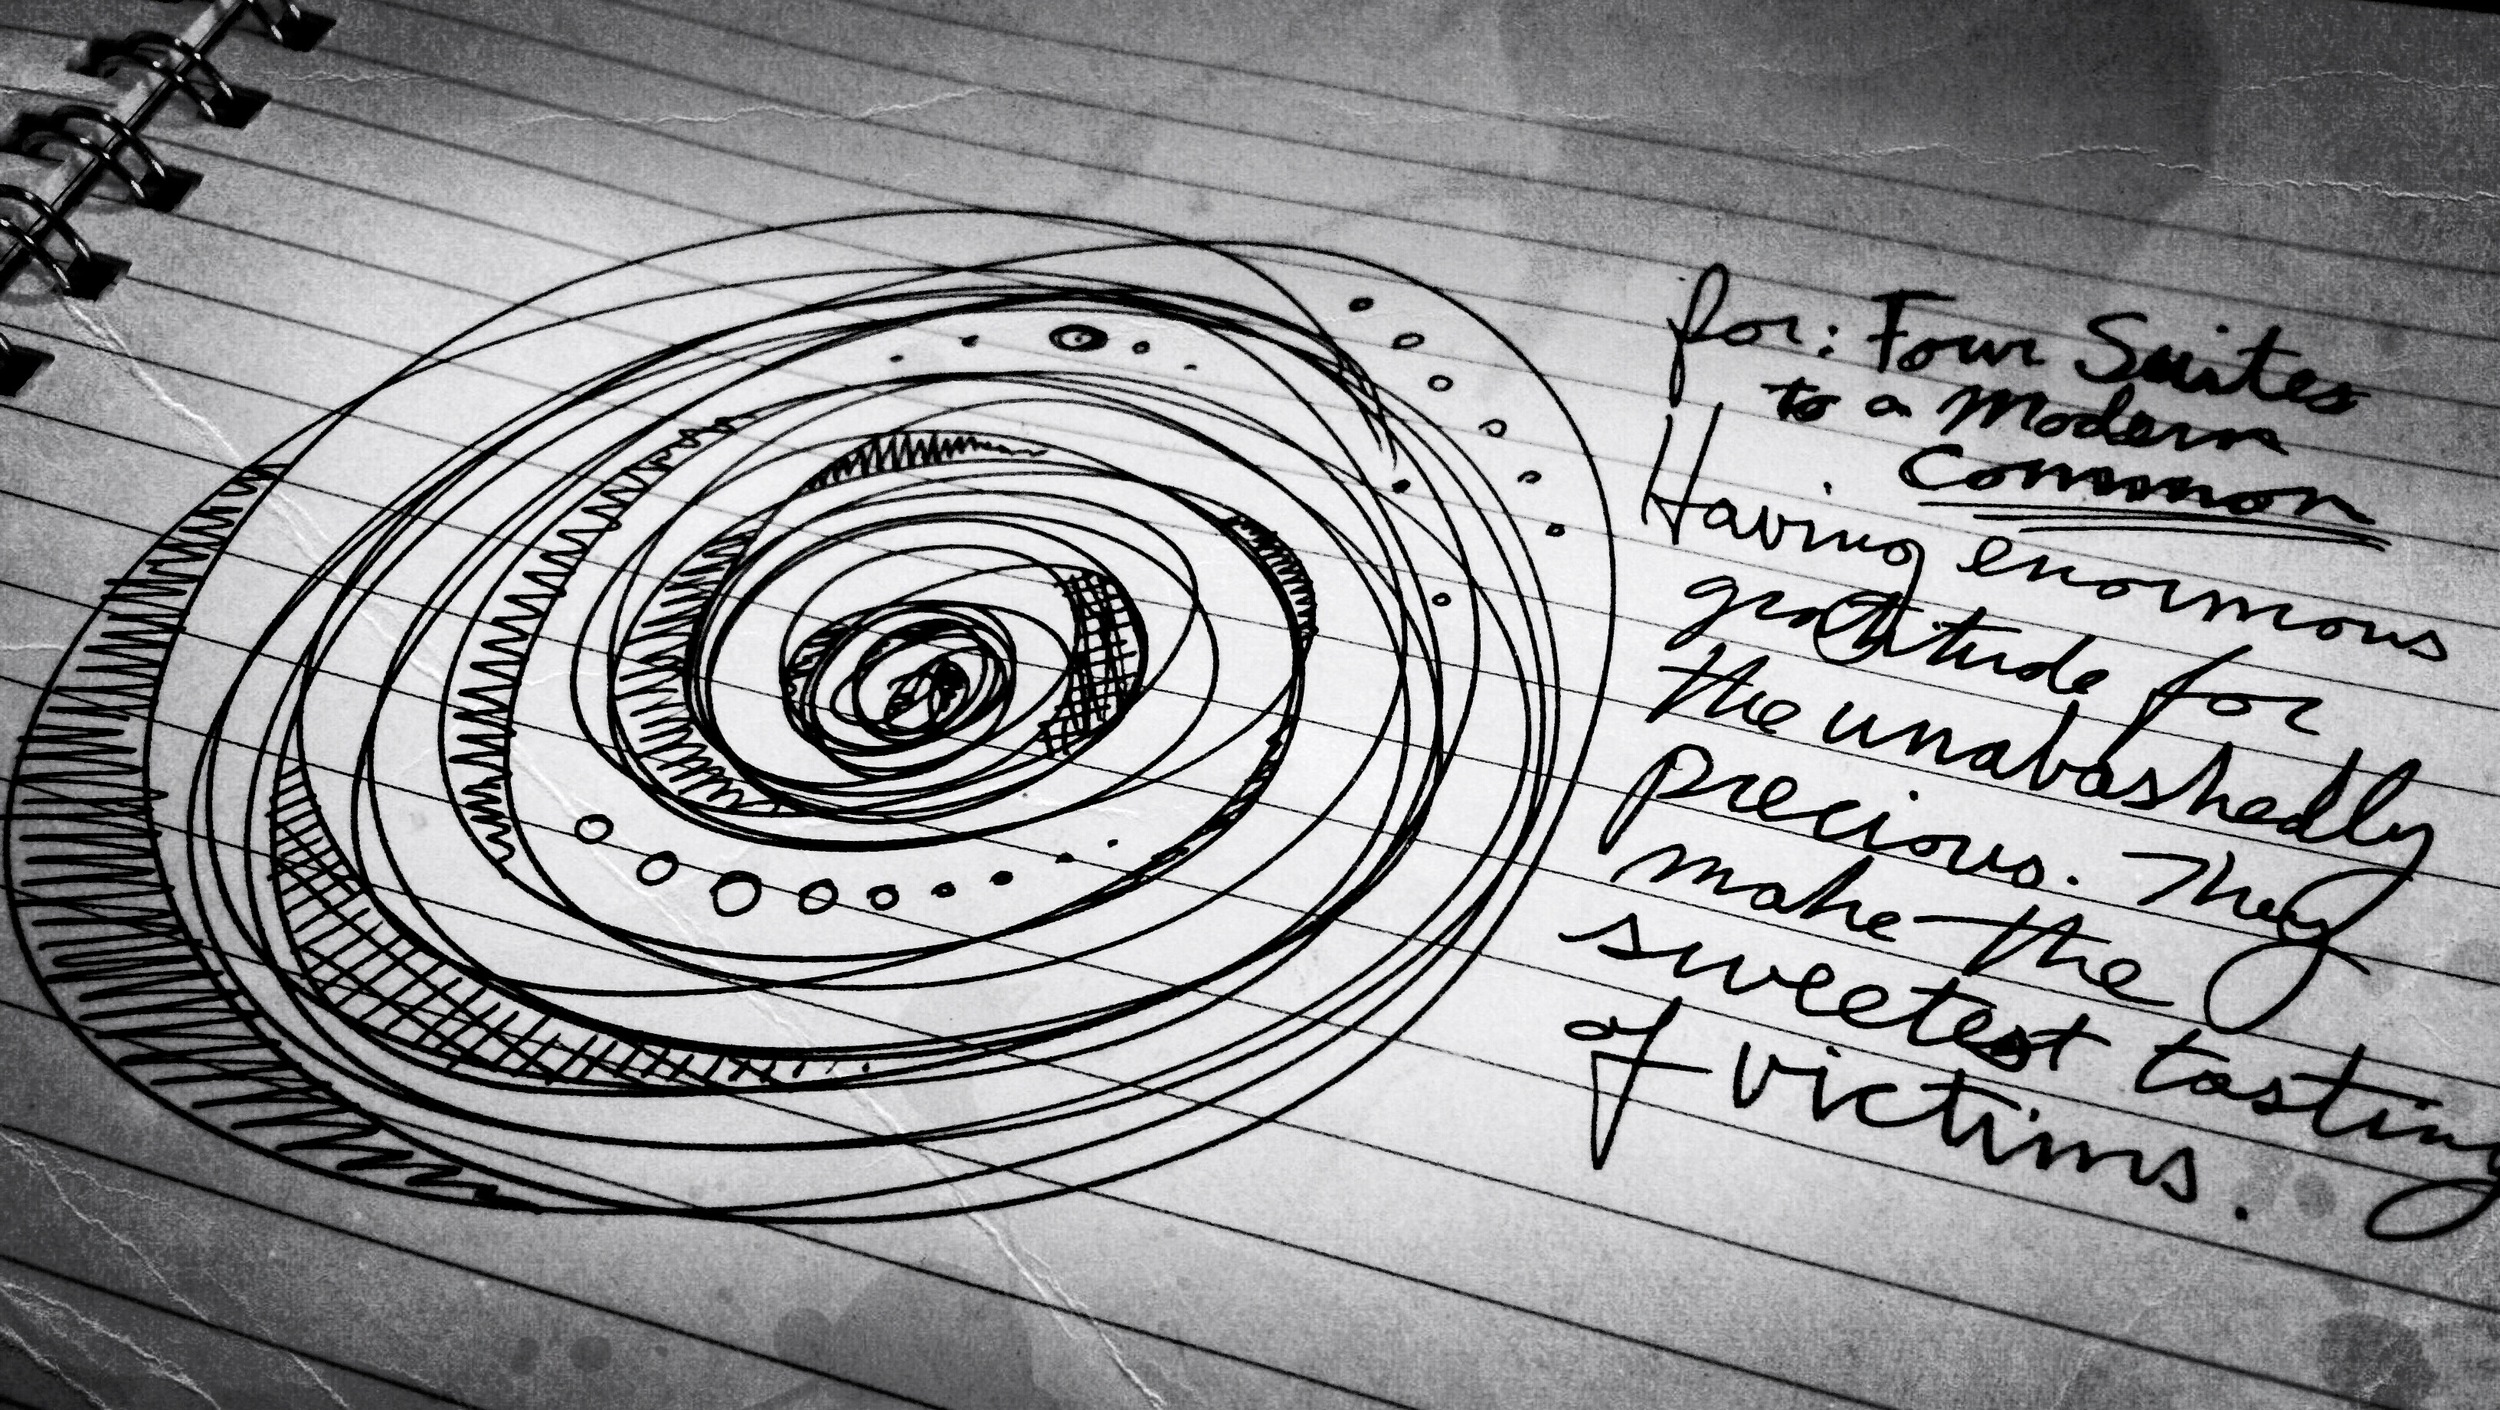 for: Four Suites
to a Modern
Common
Having enormous
gratitude for
the unabashedly
precious. They
make the
sweetest tasting
of victims.